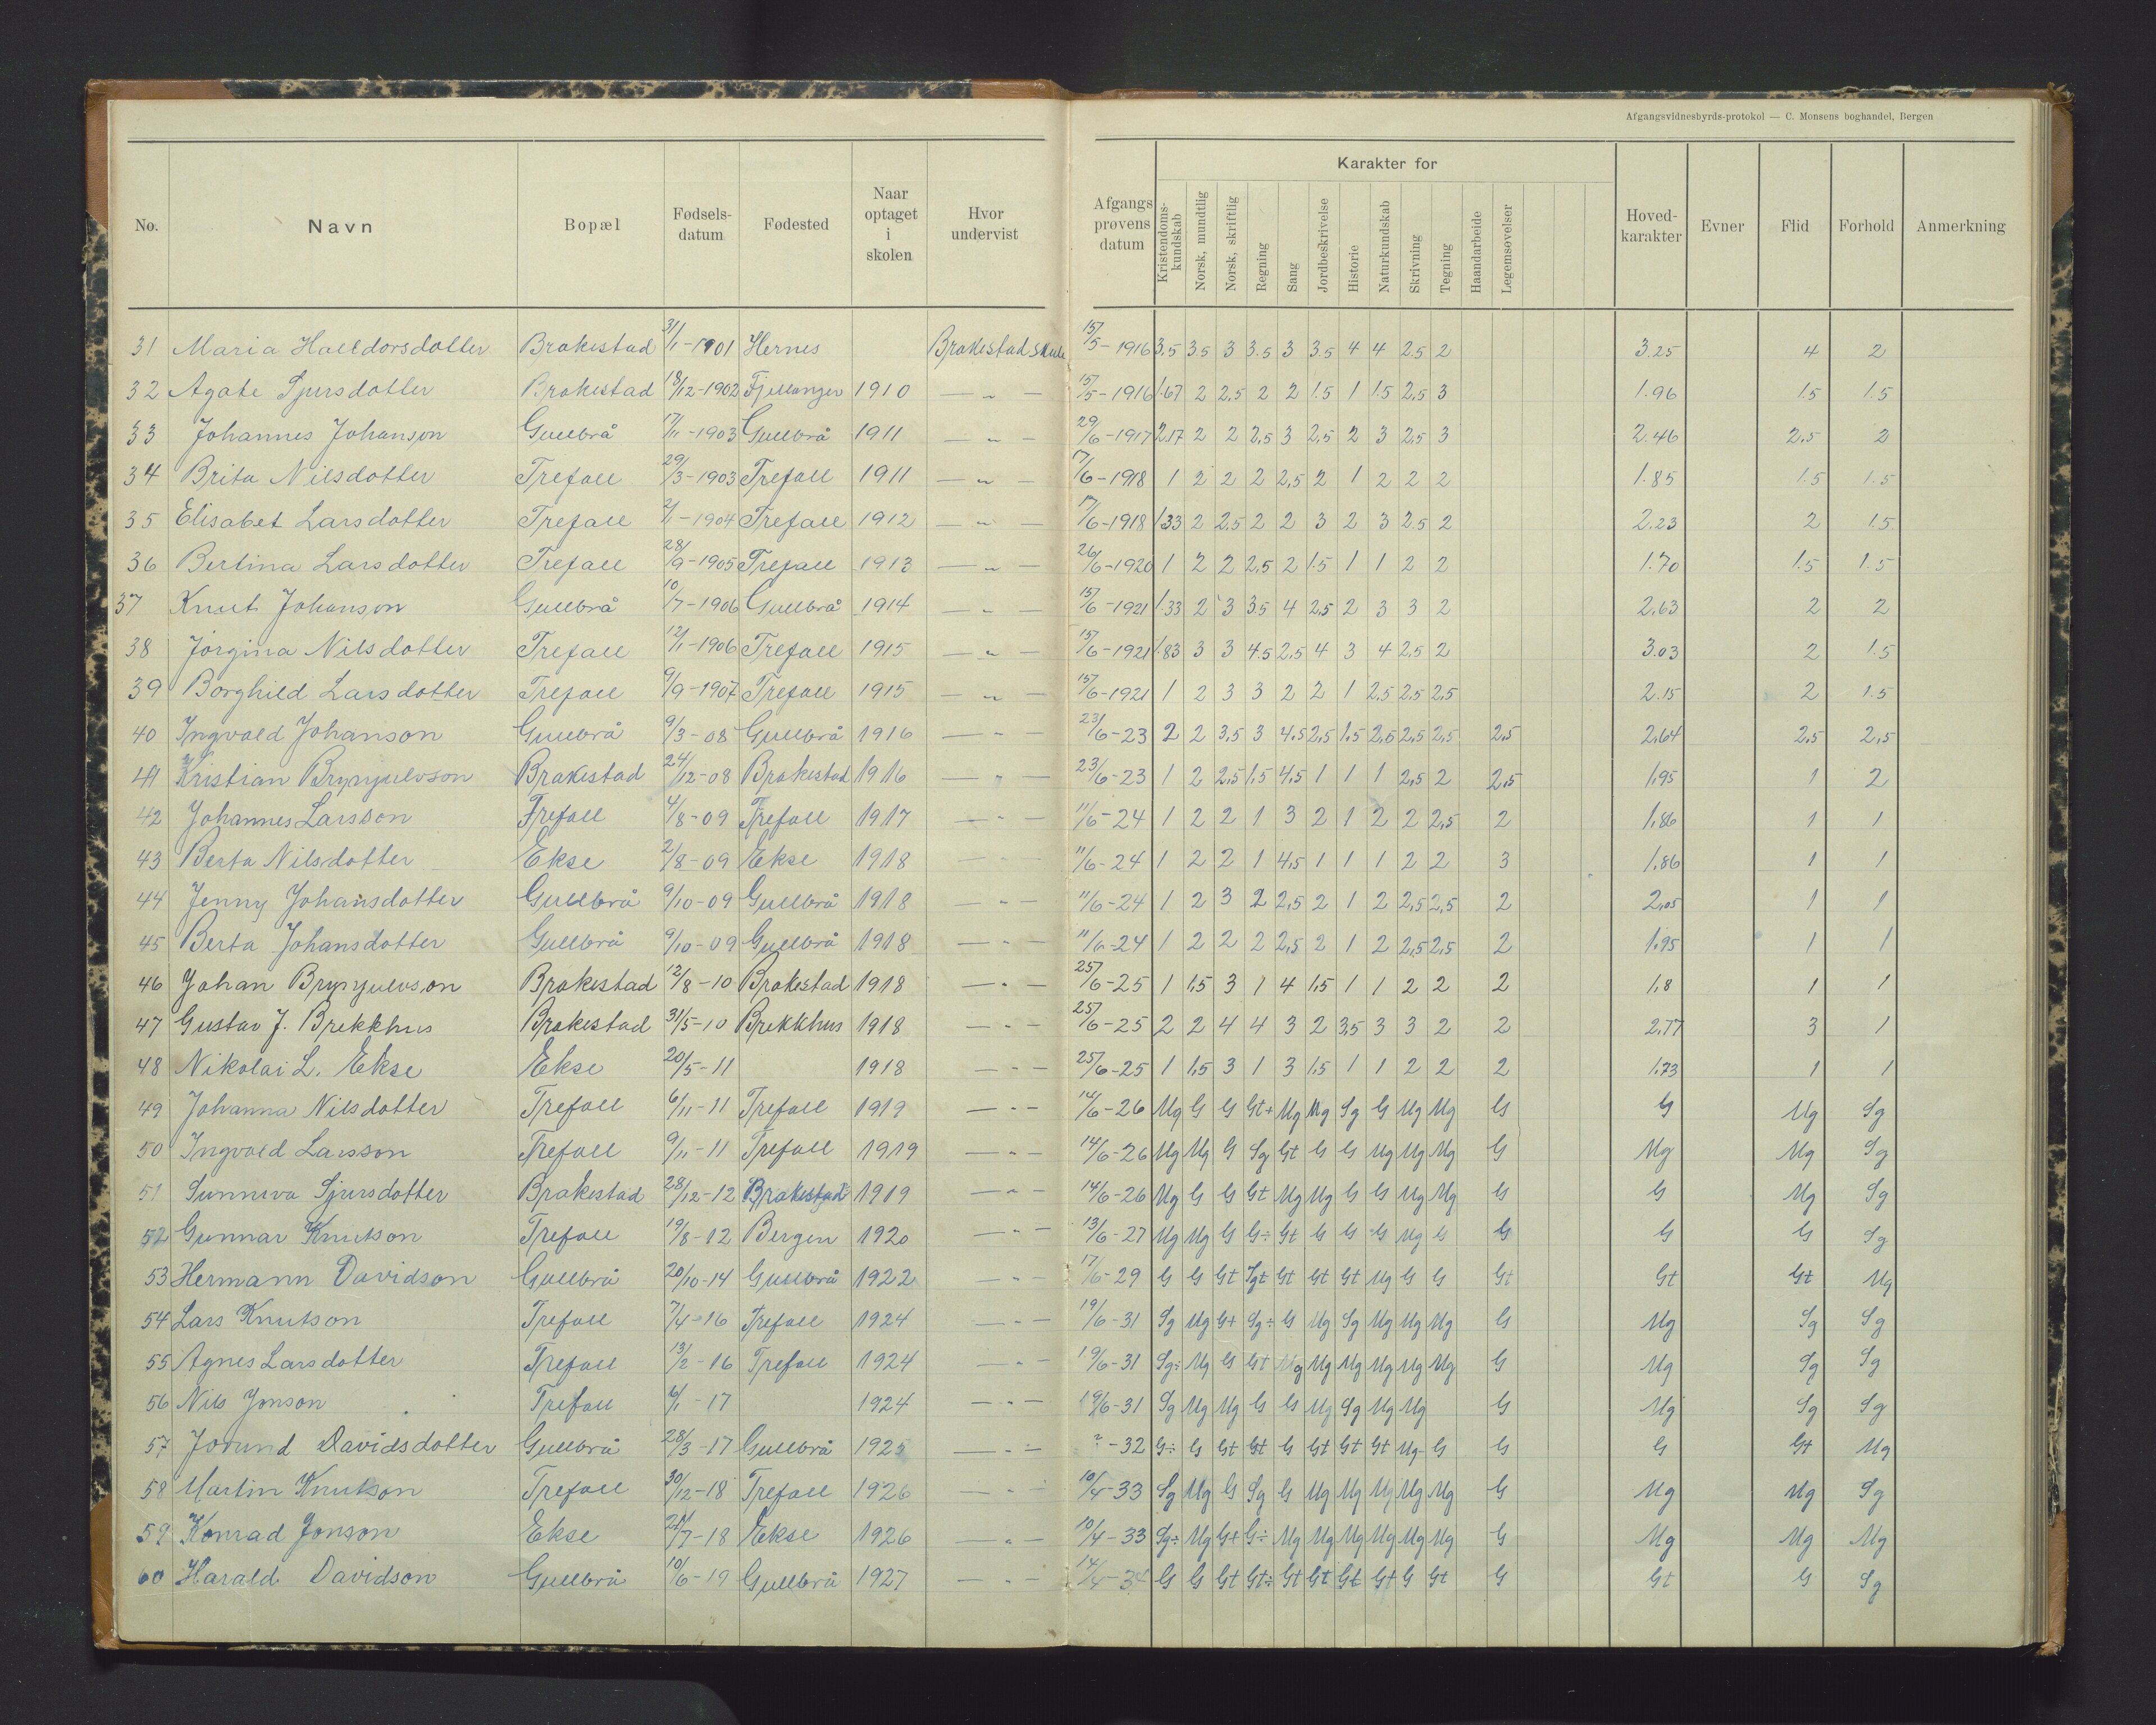 Afgangsvidnesbyrds-protokol — C. Monsens boghandel, Bergen
No. Navn Bopæl Fødselsdatum Fødested Naar optaget i skolen Hvor undervist Afgangsprøvens datum Karakter for Kristendomskundskab Norsk, mundtlig Norsk, skriftlig Regning Sang Jordbeskrivelse Historie Naturkundskab Skrivning Tegning Haandarbeide Legemsøvelser Hovedkarakter Evner Flid Forhold Anmerkning
31 Maria Halldorsdotter Brakestad 31/1-1901 Hernes Brakestad skule 15/5-1916 3.5 3.5 3 3.5 3 3.5 4 4 2.5 2 3.25 4 2
32 Agate Sjursdotter Brakestad 18/12-1902 Fjellanger 1910 — " — 15/5-1916 1.67 2 2,5 2 2 1.5 1 1.5 2,5 3 1.96 1.5 1.5
33 Johannes Johanson Gullbrå 17/11-1903 Gullbrå 1911 — " — 29/6-1917 2.17 2 2 2,5 3 2,5 2 3 2,5 3 2.46 2.5 2
34 Brita Nilsdotter Trefall 29/3-1903 Trefall 1911 — " — 17/6-1918 1 2 2 2 2,5 2 1 2 2 2 1.85 1.5 1.5
35 Elisabet Larsdotter Trefall 2/1-1904 Trefall 1912 — " — 17/6-1918 1.33 2 2,5 2 2 3 2 3 2.5 2 2.23 2 1.5
36 Bertina Larsdotter Trefall 28/9-1905 Trefall 1913 — " — 26/6-1920 1 2 2 2,5 2 1.5 1 1 2 2 1.70 1.5 1.5
37 Knut Johanson Gullbrå 10/7-1906 Gullbrå 1914 — " — 15/6-1921 1.33 2 3 3.5 4 2,5 2 3 3 2 2.63 2 2
38 Jørgina Nilsdotter Trefall 12/1-1906 Trefall 1915 — " — 15/6-1921 1.83 3 3 4.5 2,5 4 3 4 2,5 2 3.03 2 1.5
39 Borghild Larsdotter Trefall 9/9-1907 Trefall 1915 — " — 15/6-1921 1 2 3 3 2 2 1 2,5 2,5 2,5 2.15 2 1.5
40 Ingvald Johanson Gullbrå 9/3-08 Gullbrå 1916 — " — 23/6-23 2 2 3,5 3 4,5 2,5 1,5 2,5 2,5 2,5 2,5 2,64 2,5 2,5
41 Kristian Brynjulvson Brakestad 24/12-08 Brakestad 1916 — " — 23/6-23 1 2 2,5 1,5 4,5 1 1 1 2,5 2 2,5 1,95 1 2
42 Johannes Larsson Trefall 4/8-09 Trefall 1917 — " — 11/6-24 1 2 2 1 3 2 1 2 2 2,5 2 1,86 1 1
43 Berta Nilsdotter Ekse 2/8-09 Ekse 1918 — " — 11/6-24 1 2 2 1 4,5 1 1 1 2 2 3 1,86 1 1
44 Jenny Johansdotter Gullbrå 9/10-09 Gullbrå 1918 — " — 11/6-24 1 2 3 2 2,5 2 1 2 2,5 2,5 2 2,05 1 1
45 Berta Johansdotter Gullbrå 9/10-09 Gullbrå 1918 — " — 11/6-24 1 2 2 2 2,5 2 1 2 2,5 2,5 2 1,95 1 1
46 Johan Brynjulvson Brakestad 12/8-10 Brakestad 1918 — " — 25/6-25 1 1,5 3 1 4 1,5 1 1 2 2 2 1,8 1 1
47 Gustav J. Brekkhus Brakestad 31/5-10 Brekkhus 1918 — " — 25/6-25 2 2 4 4 3 2 3,5 3 3 2 2 2,77 3 1
48 Nikolai L. Ekse Ekse 20/5-11 1918 — " — 25/6-25 1 1,5 3 1 3 1,5 1 1 2 2 2 1,73 1 1
49 Johanna Nilsdotter Trefall 6/11-11 Trefall 1919 — " — 14/6-26 Mg G G Gt+ Mg Mg Sg G Mg Mg G G Mg Sg
50 Ingvald Larsson Trefall 9/11-11 Trefall 1919 — " — 14/6-26 Mg Mg G Sg Gt G G Mg Mg Mg G Mg Mg Sg
51 Sunniva Sjursdotter Brakestad 28/12-12 Brakestad 1919 — " — 14/6-26 Mg G G Gt Mg Mg G G Mg Mg G G Mg Sg
52 Gunnar Knutson Trefall 19/8-12 Bergen 1920 — " — 13/6-27 Mg Mg G G÷ Gt G G G Mg G G G G Sg
53 Hermann Davidson Gullbrå 20/10-14 Gullbrå 1922 — " — 17/6-29 G G Gt Sgt Gt Gt Gt Mg G G Gt Gt Gt Mg
54 Lars Knutson Trefall 7/4-16 Trefall 1924 — " — 19/6-31 Sg Mg G+ Sg÷ G Mg Sg Mg Mg Mg G Mg Sg Sg
55 Agnes Larsdotter Trefall 13/2-16 Trefall 1924 — " — 19/6-31 Sg÷ Mg G Gt Mg Mg Mg Mg Mg Mg G Mg Sg Sg
56 Nils Jonson Trefall 6/1-17 1924 — " — 19/6-31 Sg Mg Mg G G Mg Sg Mg Mg G Mg Sg Sg
57 Jorund Davidsdotter Gullbrå 28/3-17 Gullbrå 1925 — " — ?-32 G÷ G Gt Gt G Gt Gt Gt Mg- G G G Gt Mg
58 Martin Knutson Trefall 30/12-18 Trefall 1926 — " — 10/4-33 Sg Mg G Sg G Mg Mg Mg Mg Mg G Mg Mg Sg
59 Konrad Jonson Ekse /7-18 Ekse 1926 — " — 10/4-33 Sg÷ Mg G+ G÷ Mg Mg Mg Mg Mg Mg G Mg Mg Mg
60 Harald Davidson Gullbrå 10/6-19 Gullbrå 1927 — " — 14/4-34 G G Gt Gt÷ Gt Gt Gt Gt G Gt G Gt G Sg